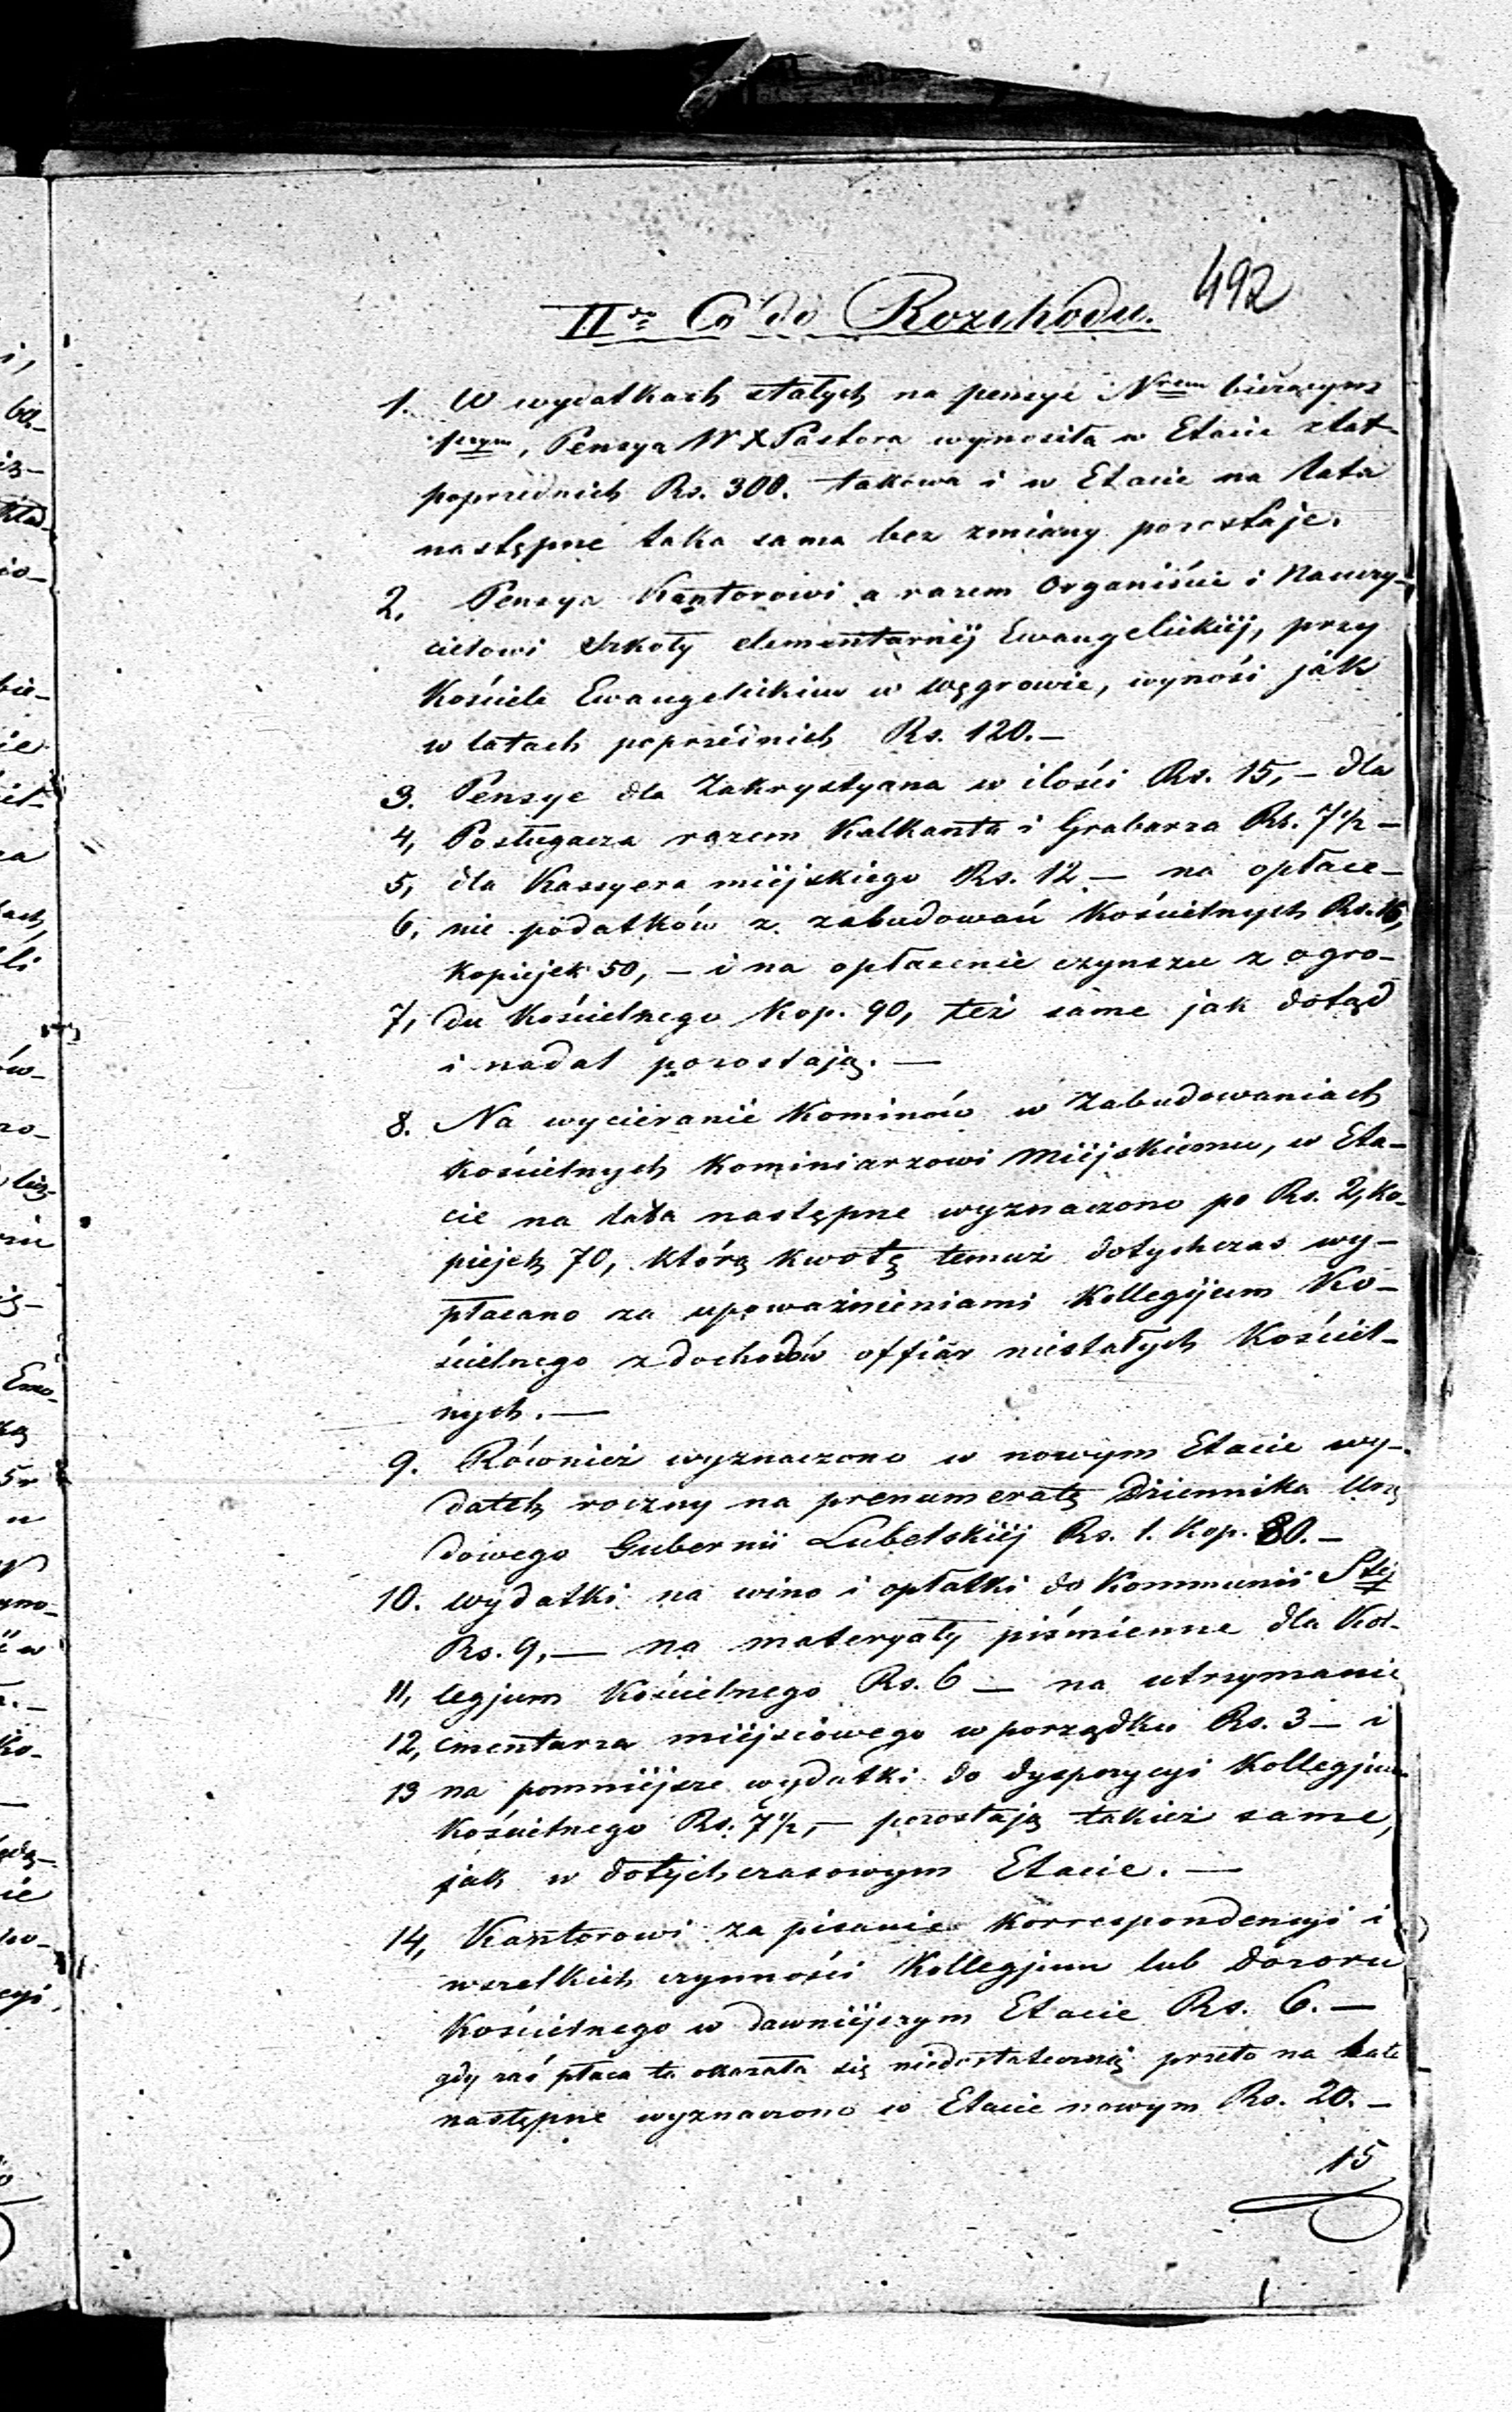 492
IIdo Co do Rozchodu.
1. W wydatkach stałych na pensye Nrem bieżącym
1szym, Pensya WX Pastora wynosiła w Etacie z lat
poprzednich Rs. 300. takowa i w Etacie na lata
następne taka sama bez zmiany pozostaje.
2, Pensya Kantorowi a razem Organiście i Nauczy-
cielowi Szkoły elementarnéj Ewangelickiéj, przy
Kościele Ewangelickim w Węgrowie, wynosi jak
w latach poprzednich Rs. 120.—
3. Pensye dla Zakrystyana w ilości Rs. 15,— dla
4, Posługacza razem Kalkanta i Grabarza Rs. 7½—
5, dla Kassyera miejskiego Rs. 12— na opłace-
6, nie podatków z zabudowań Kościelnych Rs. 16,
Kopiejek 50,— i na opłacenie czynszu z ogro-
7, du Kościelnego Kop. 90, też same jak dotąd
i nadal pozostają.—
8. Na wycieranie Kominów w Zabudowaniach
Kościelnych Kominiarzowi Miejskiemu, w Eta-
cie na lata następne wyznaczono po Rs. 2, Ko-
piejek 70, którą kwotę temuż dotychczas wy-
płacano za upoważnieniami Kollegijum Ko-
ścielnego z dochodów offiar niestałych Kościel-
nych.—
9. Również wyznaczono w nowym Etacie wy-
datek roczny na prenumeratę Dziennika Urzę
dowego Gubernii Lubelskiéj Rs. 1. Kop. 80.—
10. Wydatki na wino i opłatki do Kommunii Stéj
Rs. 9,— na materyały piśmienne dla Kol-
11, legjum Kościelnego Rs. 6— na utrzymanie
12, cmentarza miejscowego w porządku Rs. 3— i
13 na pomniejsze wydatki do dyspozycyi Kollegjum
Kościelnego Rs. 7½,— pozostają takież same,
jak w dotychczasowym Etacie.—
14, Kantorowi za pisanie Korrespondencyi i
wszelkich czynności Kollegjum lub Dozoru
Kościelnego w dawniejszym Etacie Rs. 6.—
gdy zaś płaca ta okazała się niedostateczną przeto na lata
następne wyznaczono w Etacie nowym Rs. 20.—
15